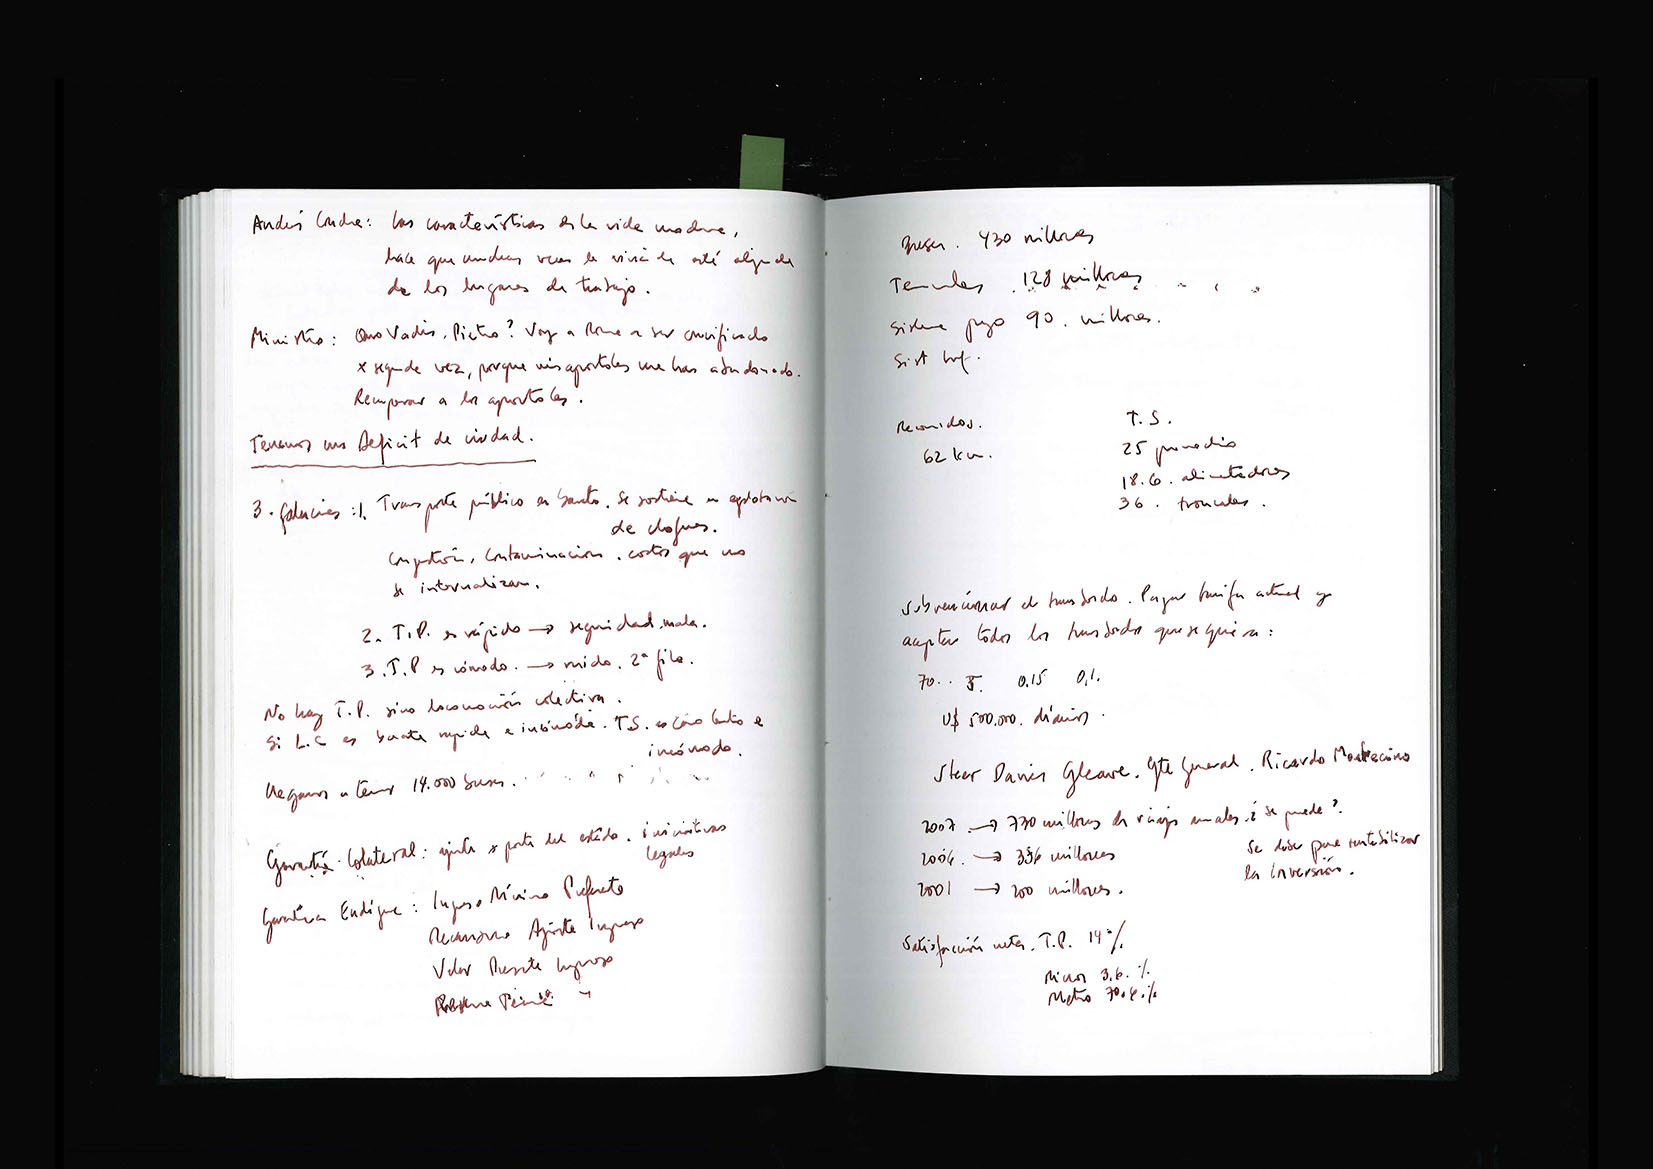 Andrés      : Las características de la vida moderna,
hace que muchas veces la vivienda esté alejada
de los lugares de trabajo.
Ministro: Quo Vadis, Pietro? Voy a Roma a ser crucificado
x segunda vez, porque mis apostoles me han abandonado.
Recuperar a los apostoles.
Tenemos un Deficit de ciudad.
3. falacias: 1. Transporte público es barato. Se sostiene en explotación
de choferes.
Congestión, Contaminación. costos que no
se internalizan.
2. T.P. es rápido → seguridad mala.
3. T.P es cómodo. → ruido. 2ª fila.
No hay T.P. sino locomoción colectiva.
Si L.C es barata rapida e incómoda. T.S. es caro lento e
incómodo.
Llegamos a tener 14.000 buses.
Garantía Colateral: ajuste x parte del estado. iniciativas
legales
Garantía       : Ingreso Mínimo
Mecanismo Ajuste Ingreso
Valor Presente Ingreso
430 millones
128 millones
Sistema pago 90. millones.
Sist Inf.
Recorridos. T.S.
62 km. 25 promedio
18.6. alimentadores
36. troncales.
Subvencionar el transbordo. Pagar tarifa actual y
aceptar todos los transbordos que se quiera:
70.. 5. 0.15 0,1.
U$ 500.000. diarios.
Steer Davies Gleave. Gte General. Ricardo Montecinos
2007. → 770 millones de viajes anuales. ¿se puede?
2006. → 336 millones se dice para rentabilizar
2001 → 200 millones. la inversión.
Satisfacción neta. T.P. 14%
Micros 3.6.%
Metro 70.4.%